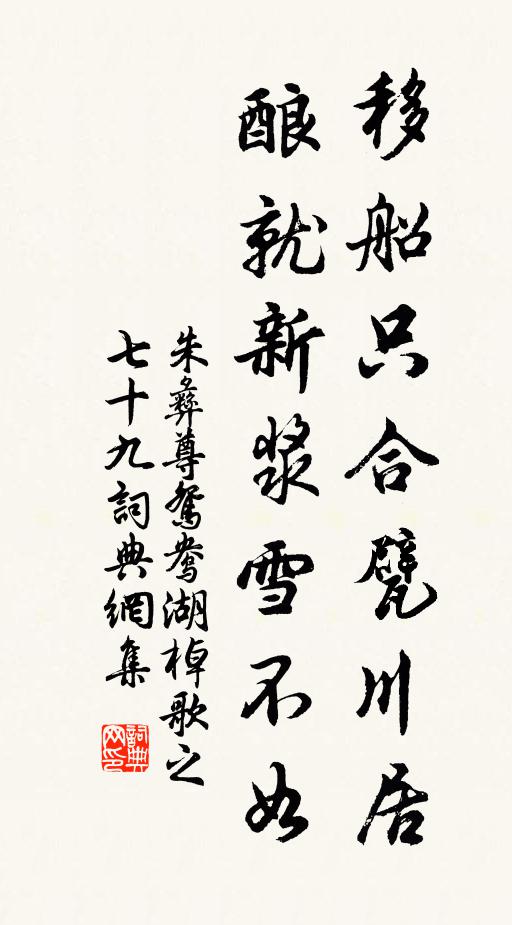 移船只合甓川居
酿就新浆雪不如
朱彝尊鸳鸯湖棹歌之
七十九詞典網集
詞典网印